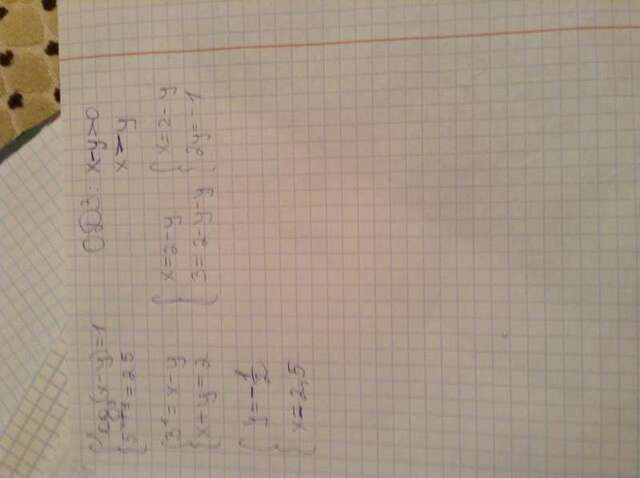 { log₃(x-y)=1
{ 5ˣ⁺ʸ=25
ОДЗ: x-y>0
x>y
{ 3¹=x-y
{ x+y=2
{ x=2-y
{ 3=2-y-y
{ x=2-y
{ 2y=-1
{ y=-1/2
{ x=2,5